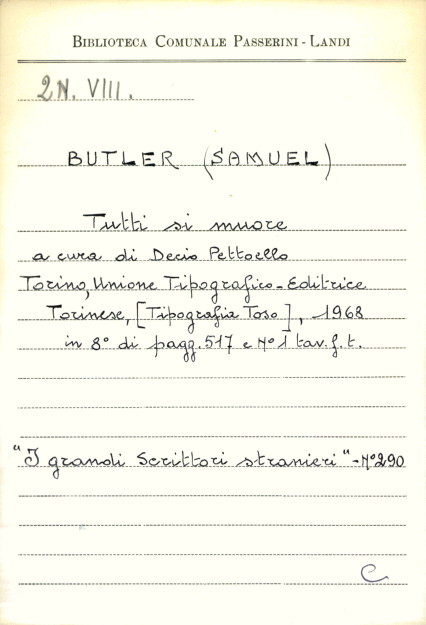 BIBLIOTECA COMUNALE PASSERINI - LANDI
2N. VIII.
BUTLER (SAMUEL)
Tutti si muore
a cura di Decio Pettoello
Torino, Unione Tipografico-Editrice
Torinese, [Tipografia Toso], 1968
in 8° di pagg. 517 e N° 1 tav. f. t.
"I grandi Scrittori stranieri" - N° 290
C